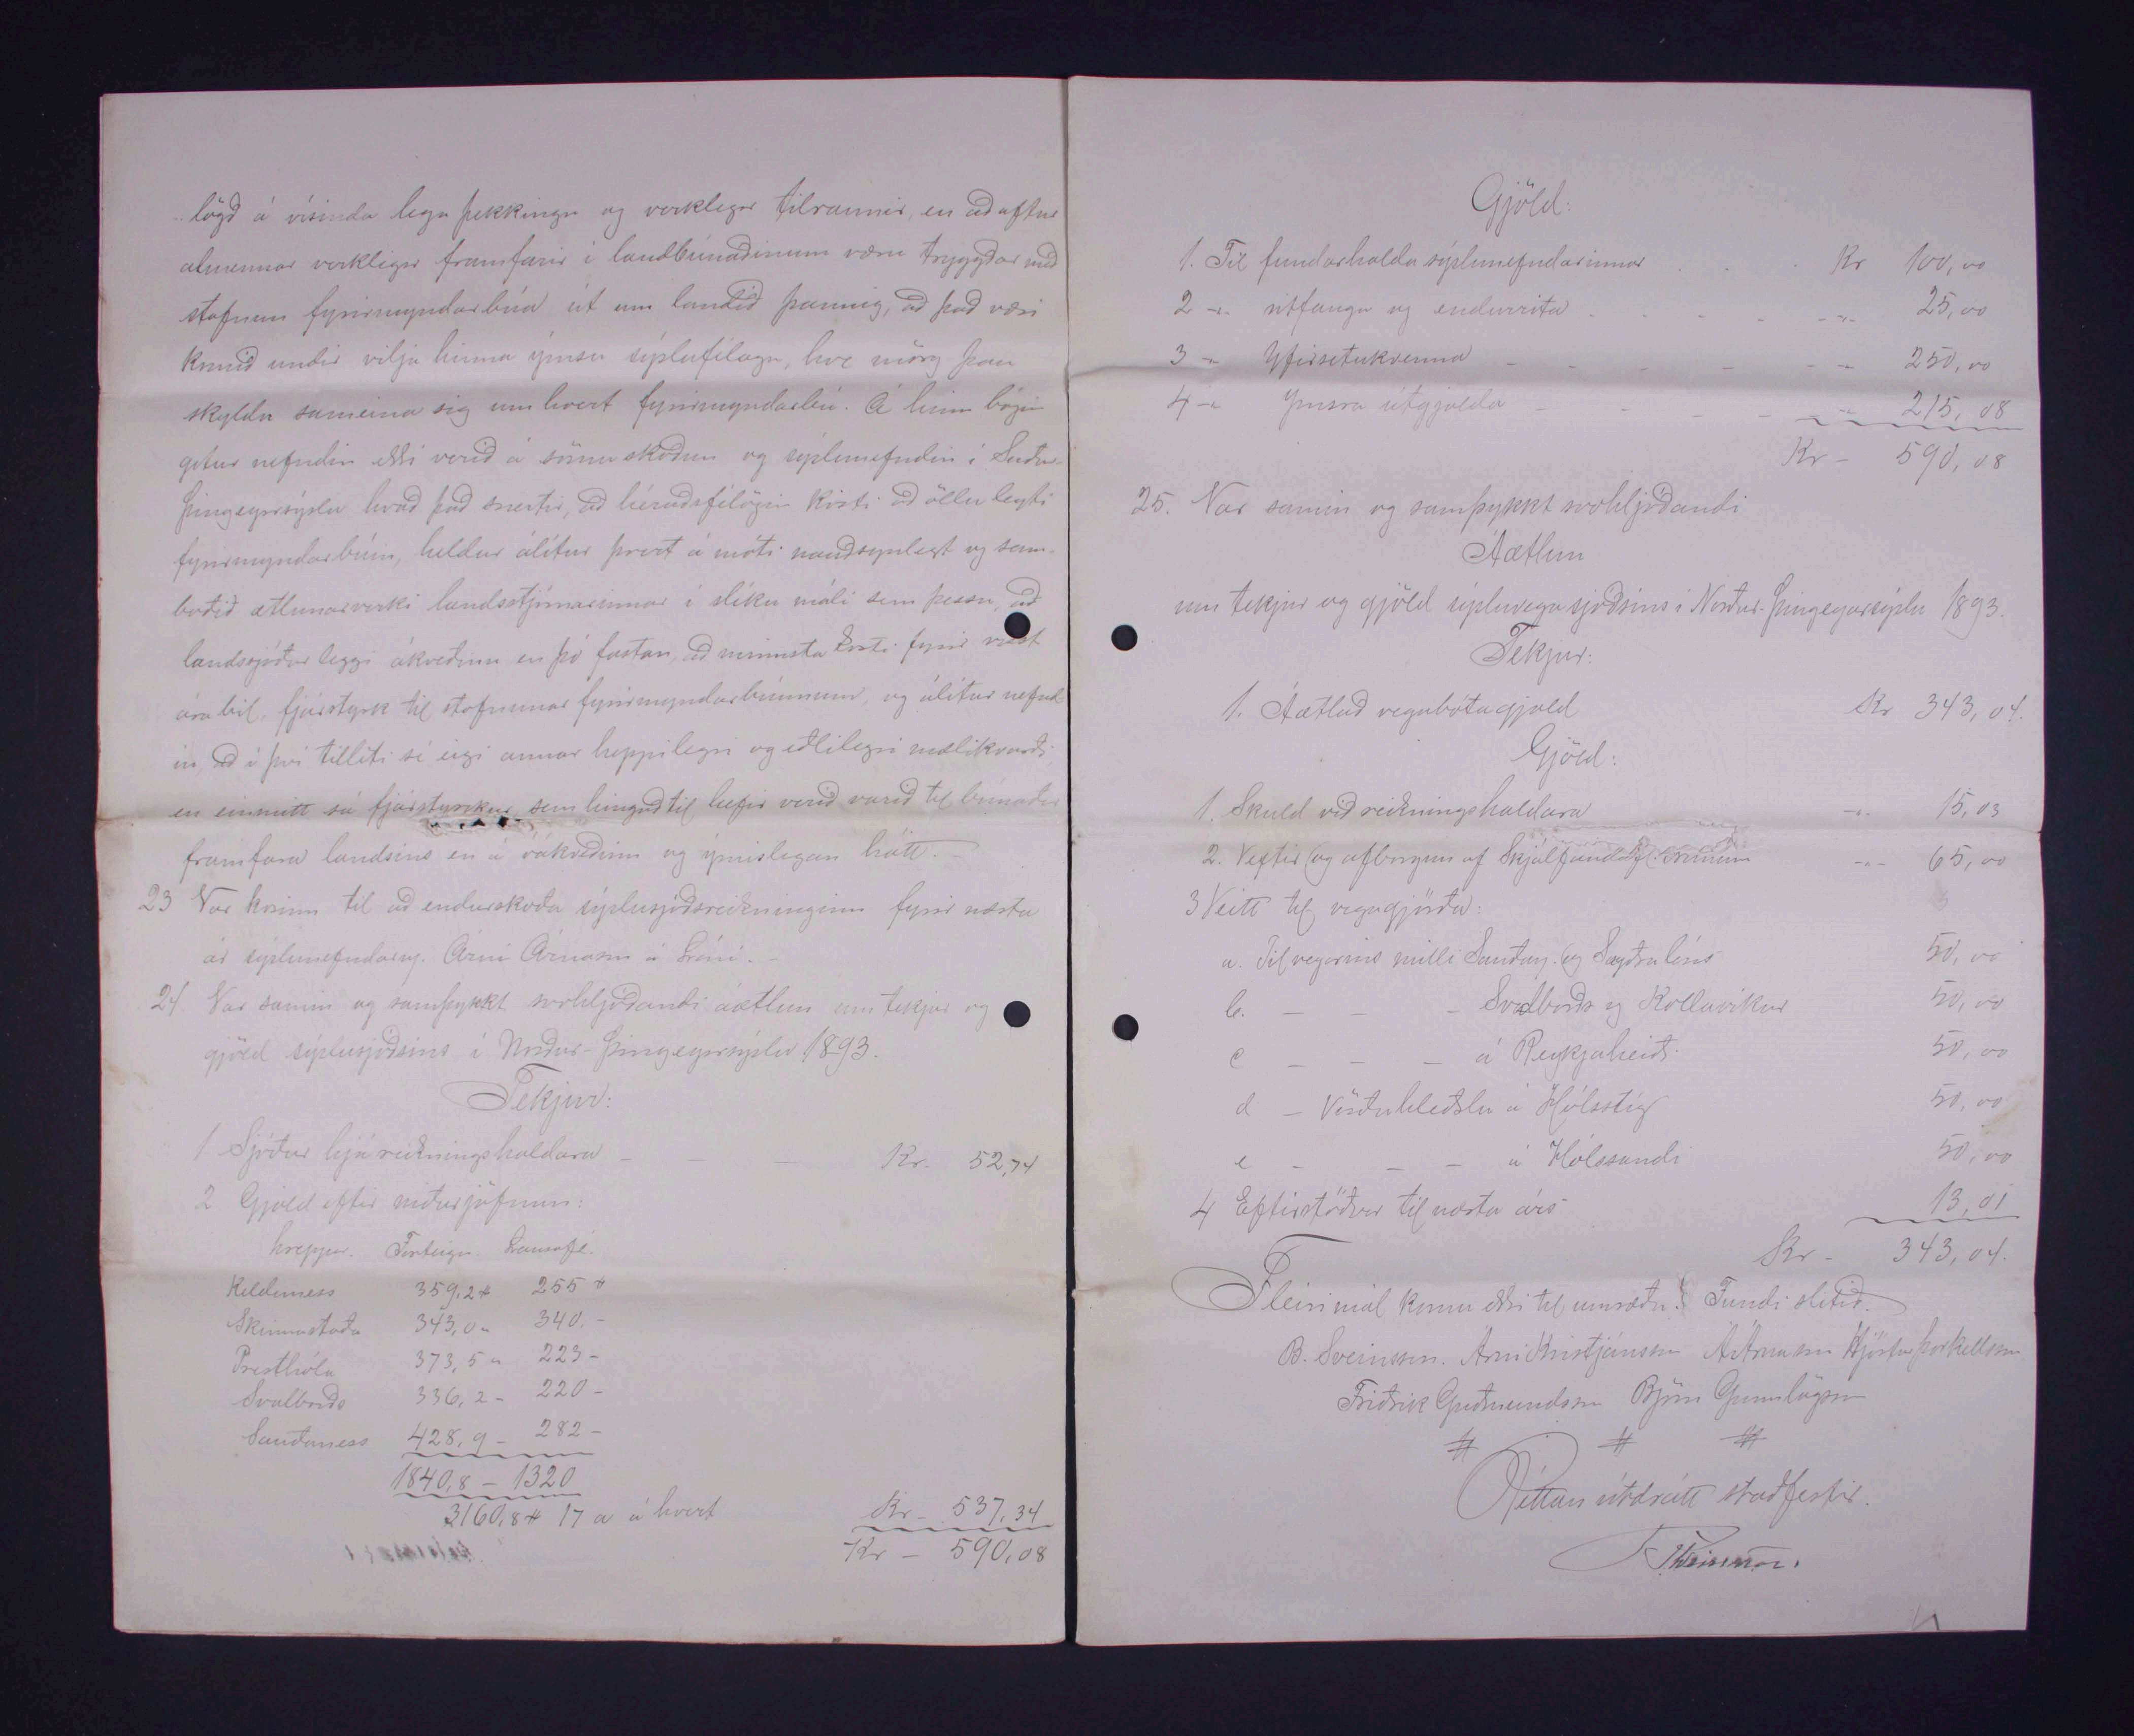 lögð á vísinda lega þekkingu og verklegar tilraunir, en að aftur
almennar verklegar framfarir í landbúnaðinum væru tryggðar með
stofnun fyrirmyndarbúa út um landið þannig, að það væri
komið undir vilja hinna ýmsu sýslufélaga, hve mörg þau
skyldu sameina sig um hvert fyrirmyndarbú. Á hinn bóginn
getur nefndin ekki verið á sömu skoðun og sýslunefndin í Suður-
Þingeyarsýslu hvað það snertir, að héraðsfélögin kosti að öllu leyti
fyrirmyndarbúin, heldur álítur þvert á móti nauðsynlegt og sam-
boðið ætlunarverki landsstjórnarinnar í slíku máli sem þessu, að
landssjóður leggi ákveðinn en þó fastan, að minnsta kosti fyrir visst
árabil, fjárstyrk til stofnunar fyrirmyndarbúunum, og álítur nefnd
in, að í því tilliti sé eigi annar heppilegri og eðlilegri mælikvarði
en einmitt sá fjárstyrkur sem hingað til hefir verið varið til búnaðar
framfara landsins en á óákveðinn og ýmislegan hátt. -
23 Var kosinn til að endurskoða sýslusjóðsreikninginn fyrir næsta
ár sýslunefndarm. Árni Árnason á Lóni. -
24. Var samin og samþykkt svohljóðandi áætlun um tekjur og
gjöld sýslusjóðsins í Norður-Þingeyarsýslu 1893.
Tekjur:
1 Sjóður hjá reikningshaldara - - - Kr. 52,74
2 Gjöld eptir niðurjöfnun:
hreppur. Fasteign. Lausafé.
Kelduness 359,2 # 255 #
Skinnastaða 343,0 „ 340. -
Presthóla 373,5 „ 223 -
Svalbarðs 336,2 - 220 -
Sauðaness 428,9 - 282 -
1840,8 - 1320
3160,8 # 17 a á hvert Kr - 537,34
Kr - 590,08
Gjöld:
1. Til fundarhalda sýslunefndarinnar . . . Kr 100,00
2 -„- ritfanga og endurrita . . - - -„- 25,00
3 -„- Yfirsetukvenna - - - - -„- 250,00
4 -„- Ymsra útgjalda - - - - -„- 215,08
Kr - 590,08
25. Var samin og samþykkt svohljóðandi
Áætlun
um tekjur og gjöld sýsluvega sjóðsins í Norður-Þingeyarsýslu 1893.
Tekjur:
1. Áætlað vegabótagjald Kr 343,04.
Gjöld:
1. Skuld við reikningshaldara -„- 15,03
2. Vextir og afborgun af Skjálfandaf. brúnum -„- 65,00
3 Veitt til vegagjörða:
a. Til vegarins milli Sauðan. og 50,00
b. - - - Svalbarðs og Kollavíkur 50,00
c - - - á Reykjaheiði 50,00
d - Vörðuhleðslu á Hólsstíg 50,00
e - - - á Hólssandi 50,00
4 Eptirstöðvar til næsta árs 13,01
Kr - 343,04.
Fleiri mál komu ekki til umræðu. Fundi slitið.
B. Sveinsson. Árni Kristjánsson Á Árnason Hjörtur Þorkellsson
Friðrik Guðmundsson Björn Gunnlögsson
# # #
Réttan útdrátt staðfestir.
BSveinsson.